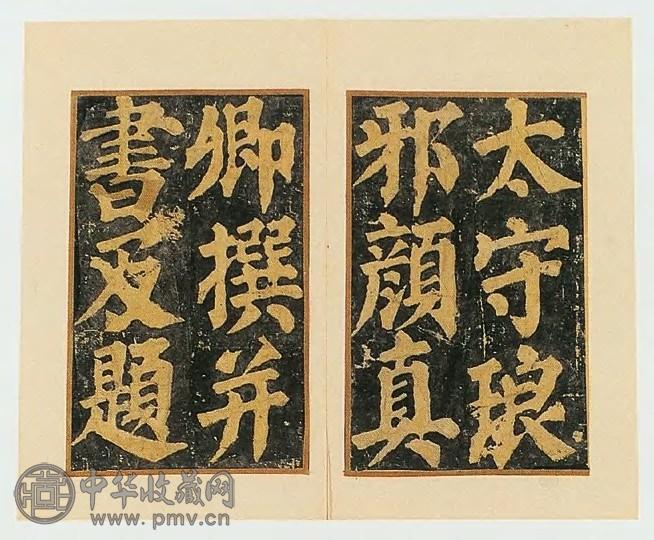 太守琅
邪顔真
卿撰并
書及題
中华收藏网
www.pmv.cn